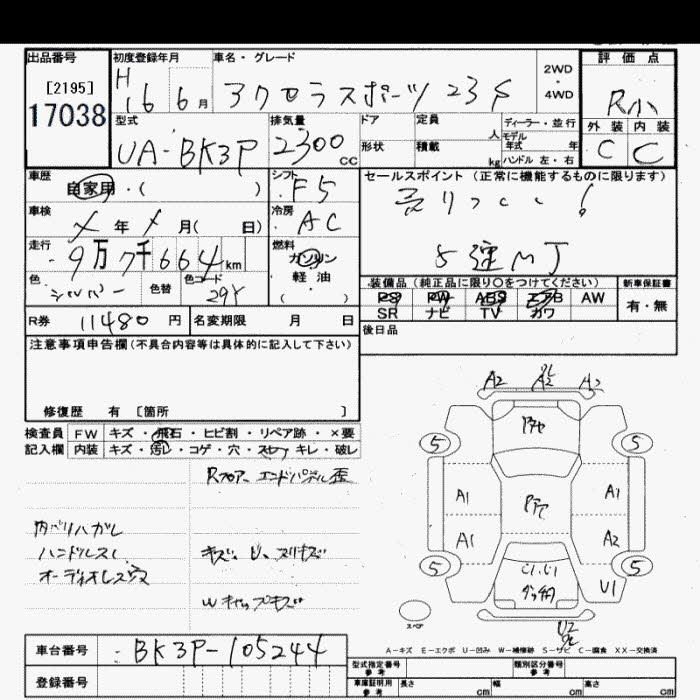 出品番号 初度登録年月 車名・グレード 評価点
[2195]
17038
H 16 6月
アクセラスポーツ 23S
2WD
・
4WD
R小
外装 内装
C C
型式 排気量 ドア 定員 ディーラー・並行
UA-BK3P 2300cc
形状 積載 人 モデル年式 年
kg ハンドル 左・右
車歴 シフト セールスポイント (正常に機能するものに限ります)
自家用・( ) F5
売りつくし!
車検 冷房
メ年メ月( 日) AC
走行 燃料
9万7千664km ガソリン
5速MT
軽・油
( ・ )
色 色替 色コード
シルバー
装備品(純正品に限り○をつけてください) 新車保証書
PS PW ABS エアB AW 有・無
SR ナビ TV カワ
R券 11480円 名変期限 月 日
後日品
注意事項申告欄(不具合内容等は具体的に記入して下さい)
修復歴 有 [箇所 ]
検査員 FW キズ・飛石・ヒビ割・リペア跡・×要
記入欄 内装 キズ・汚レ・コゲ・穴・スレ・キレ・破レ
Rフロアー エンドパネル歪
内バリハガレ
ハンドルスレ キズ、U、スリキズ
オーディオレス穴
Wキャップキズ
A2 A2 A2
5 5
A1 A1
A1 A2
5 5
U1
スペア
U2
A-キズ E-エクボ U-凹み W-補修跡 S-サビ C-腐食 XX-交換済
車台番号 BK3P-105244
登録番号
型式指定番号 参考 類別区分番号 参考
車庫証明用 参考 長さ cm 幅 cm 高さ cm